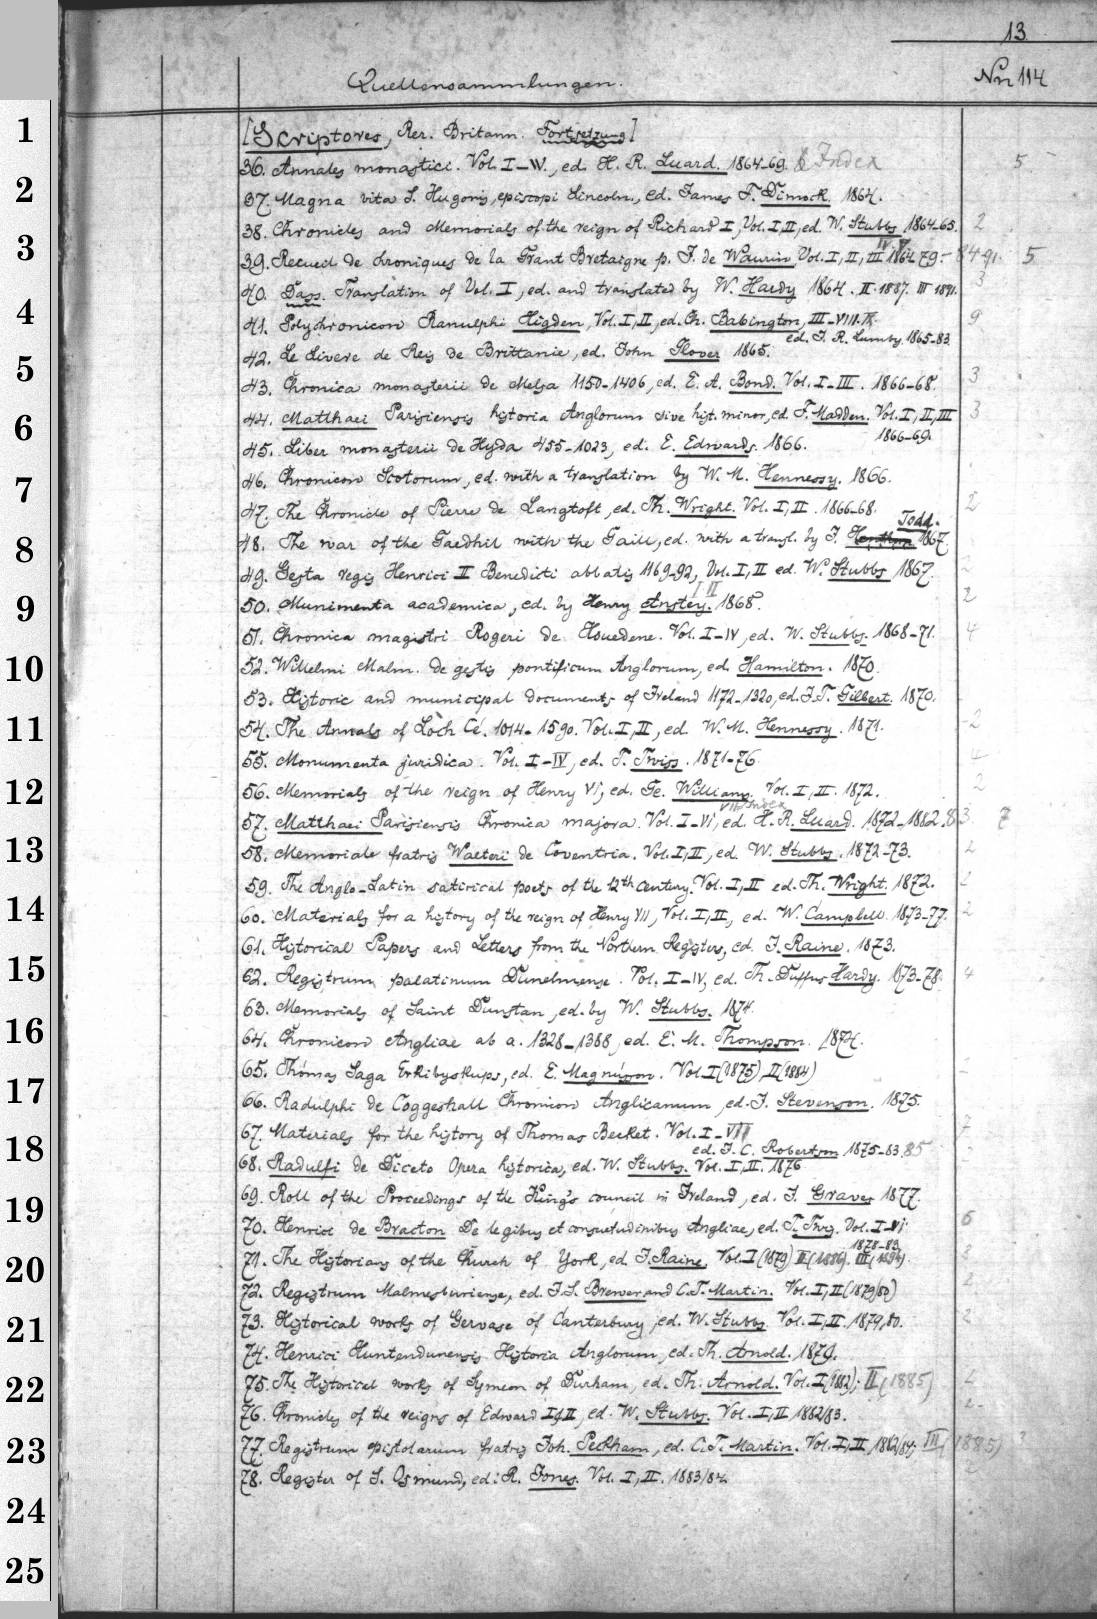 13
Quellensammlungen.
Nn 114
1
[Scriptores, Rer. Britann. Fortsetzung]
36. Annales monastici. Vol. I–IV., ed. H. R. Luard. 1864-69. & Index 5
2
37. Magna vita S. Hugonis, episcopi Lincoln., ed. James F. Dimock. 1864.
38. Chronicles and Memorials of the reign of Richard I, Vol. I, II, ed. W. Stubbs 1864-65. 2
3
IV V
39. Recueil de Kroniques de la Grant Bretaigne p. J. de Waurin, Vol. I, II, III 1864 79.- 84-91. 5
40. Dass. Translation of Vol. I, ed. and translated by W. Hardy 1864. II 1887. III 1891. 3
4
41. Polychronicon Ranulphi Higden, Vol. I, II, ed. Ch. Babington, III-VIII. IX. 9
ed. J. R. Lumby. 1865-83.
42. Le Livere de Reis de Brittanie, ed. John Glover 1865.
5
43. Chronica monasterii de Melsa 1150-1406, ed. E. A. Bond. Vol. I–III. 1866-68. 3
44. Matthaei Parisiensis historia Anglorum sive hist. minor, ed. F. Madden. Vol. I, II, III 3
6
1866-69.
45. Liber monasterii de Hyda 455-1023, ed. E. Edwards. 1866.
46. Chronicon Scotorum, ed. with a translation by W. M. Hennessy. 1866.
7
47. The Chronicle of Pierre de Langtoft, ed. Th. Wright. Vol. I, II. 1866-68. 2
Todd.
8
48. The war of the Gaedhil with the Gaill, ed. with a transl. by J. 1867.
49. Gesta regis Henrici II Benedicti abbatis 1169-92, Vol. I, II ed. W. Stubbs 1867. 2
I II
9
50. Munimenta academica, ed. by Henry Anstey. 1868. 2
51. Chronica magistri Rogeri de Houedene. Vol. I–IV, ed. W. Stubbs. 1868-71. 4
10
52. Willelmi Malm. de gestis pontificum Anglorum, ed. Hamilton. 1870.
53. Historic and municipal documents of Ireland 1172-1320, ed. J. T. Gilbert. 1870.
11
54. The Annals of Loch Cé. 1014-1590. Vol. I, II, ed. W. M. Hennessy. 1871. 2
55. Monumenta juridica. Vol. I–IV, ed. T. Twiss. 1871-76. 4
12
56. Memorials of the reign of Henry VI, ed. Ge. Williams. Vol. I, II. 1872. 2
VII Index
57. Matthaei Parisiensis Chronica majora. Vol. I–VI, ed. H. R. Luard. 1872-1882.83. 7
13
58. Memoriale fratris Walteri de Coventria. Vol. I, II, ed. W. Stubbs. 1872-73. 2
59. The Anglo-Latin satirical poets of the 12th Century. Vol. I, II ed. Th. Wright. 1872. 2
14
60. Materials for a history of the reign of Henry VII, Vol. I, II, ed. W. Campbell. 1873-77. 2
61. Historical Papers and Letters from the Northern Registers, ed. J. Raine. 1873.
15
62. Registrum palatinum Dunelmense. Vol. I–IV, ed. Th. Duffus Hardy. 1873-78. 4
63. Memorials of Saint Dunstan, ed. by W. Stubbs. 1874.
16
64. Chronicon Angliae ab a. 1328-1388, ed. E. M. Thompson. 1874.
65. Thómas Saga Erkibyskups, ed. E. Magnússon. Vol. I (1875), II (1884)
17
66. Radulphi de Coggeshall Chronicon Anglicanum, ed. J. Stevenson. 1875.
67. Materials for the history of Thomas Becket. Vol. I–VII 7
18
ed. J. C. Robertson 1875-83.85
68. Radulfi de Diceto Opera historica, ed. W. Stubbs. Vol. I, II. 1876
69. Roll of the Proceedings of the King's council in Ireland, ed. J. Graves 1877.
19
70. Henrici de Bracton De legibus et consuetudinibus Angliae, ed. T. Twiss. Vol. I–VI. 6
1878-83.
20
71. The Historians of the Church of York, ed. J. Raine. Vol. I (1879) II (1886). III (1894). 3
72. Registrum Malmesburiense, ed. J. S. Brewer and C. T. Martin. Vol. I, II (1879/80) 2
21
73. Historical works of Gervase of Canterbury, ed. W. Stubbs. Vol. I, II. 1879, 80. 2
74. Henrici Huntendunensis Historia Anglorum, ed. Th. Arnold. 1879.
22
75. The Historical works of Symeon of Durham, ed. Th. Arnold. Vol. I (1882); II (1885) 2
76. Chronicles of the reigns of Edward I & II, ed. W. Stubbs. Vol. I, II 1882/83. 2
23
77. Registrum epistolarum fratris Joh. Peckham, ed. C. T. Martin. Vol. I, II, 1882/84; III (1885) 3
78. Register of S. Osmund, ed. R. Jones. Vol. I, II. 1883/84.
24
25